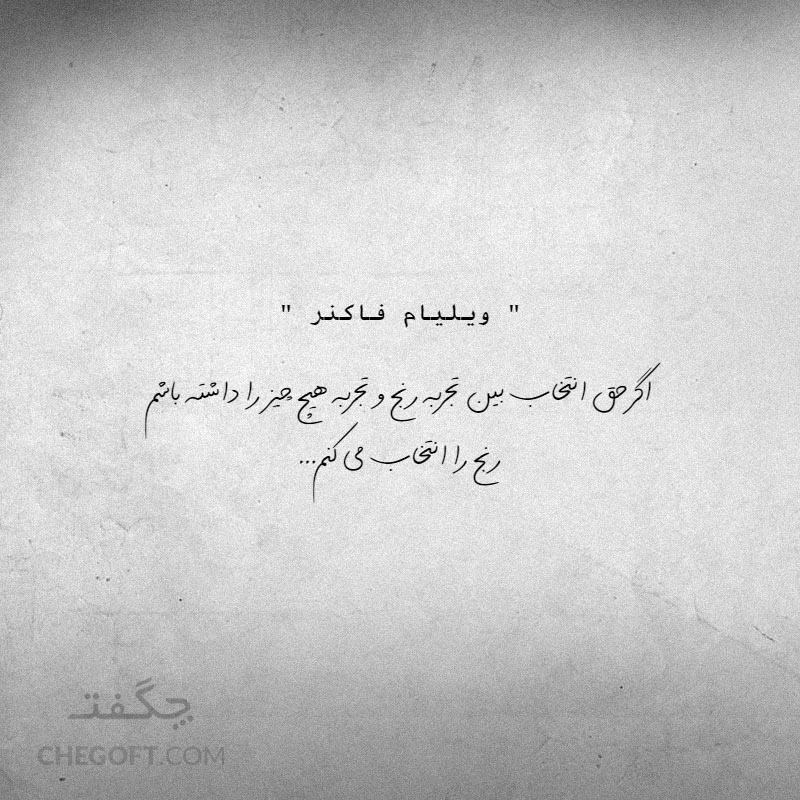 " ویلیام فاکنر "
اگر حق انتخاب بین تجربه رنج و تجربه هیچ چیز را داشته باشم
رنج را انتخاب می کنم...
چگفت
CHEGOFT.COM